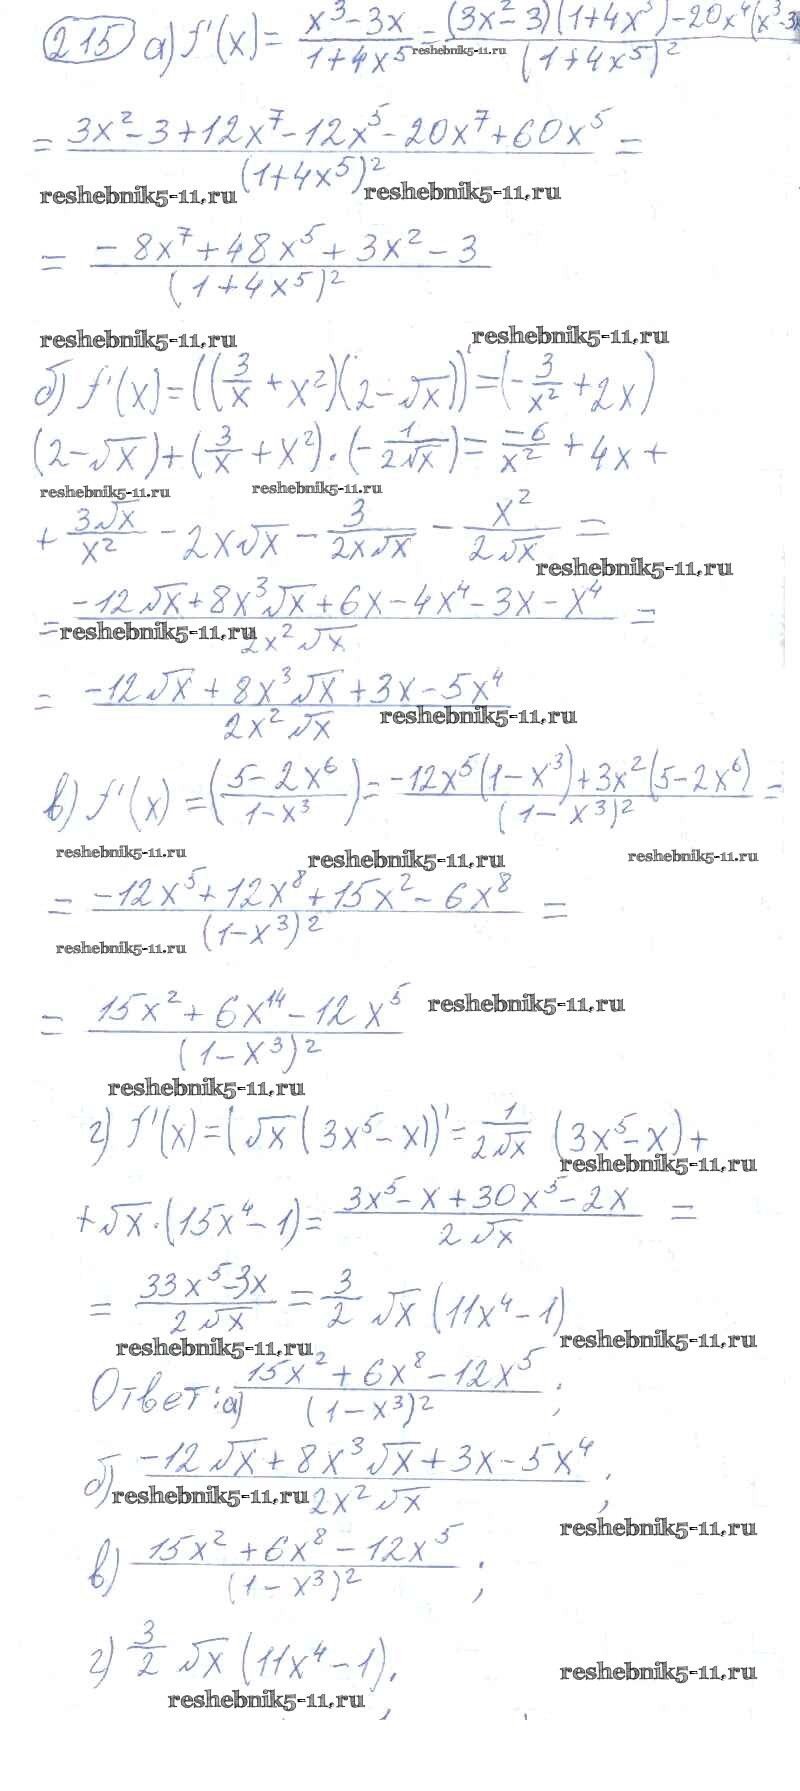 215 а) f'(x) = (x³-3x)/(1+4x⁵) = ((3x²-3)(1+4x⁵)-20x⁴(x³-3x))/(1+4x⁵)²
reshebnik5-11.ru
= (3x²-3+12x⁷-12x⁵-20x⁷+60x⁵)/(1+4x⁵)² =
reshebnik5-11.ru reshebnik5-11.ru
= (-8x⁷+48x⁵+3x²-3)/(1+4x⁵)²
reshebnik5-11.ru reshebnik5-11.ru
б) f'(x)=((3/x + x²)(2-√x))' = (-3/x² + 2x)
(2-√x)+(3/x + x²)·(-1/(2√x)) = -6/x² + 4x +
reshebnik5-11.ru reshebnik5-11.ru
+ 3√x/x² - 2x√x - 3/(2x√x) - x²/(2√x) =
reshebnik5-11.ru
= (-12√x+8x³√x+6x-4x⁴-3x-x⁴)/(2x²√x) =
reshebnik5-11.ru
= (-12√x+8x³√x+3x-5x⁴)/(2x²√x)
reshebnik5-11.ru
в) f'(x) = ((5-2x⁶)/(1-x³))' = (-12x⁵(1-x³)+3x²(5-2x⁶))/(1-x³)² =
reshebnik5-11.ru reshebnik5-11.ru reshebnik5-11.ru
= (-12x⁵+12x⁸+15x²-6x⁸)/(1-x³)² =
reshebnik5-11.ru
= (15x²+6x¹⁴-12x⁵)/(1-x³)²
reshebnik5-11.ru
reshebnik5-11.ru
г) f'(x)=(√x(3x⁵-x))' = 1/(2√x) (3x⁵-x)+
reshebnik5-11.ru
+√x·(15x⁴-1) = (3x⁵-x+30x⁵-2x)/(2√x) =
= (33x⁵-3x)/(2√x) = 3/2 √x(11x⁴-1)
reshebnik5-11.ru reshebnik5-11.ru
Ответ: а) (15x²+6x⁸-12x⁵)/(1-x³)²;
б) (-12√x+8x³√x+3x-5x⁴)/(2x²√x);
reshebnik5-11.ru
reshebnik5-11.ru
в) (15x²+6x⁸-12x⁵)/(1-x³)²;
г) 3/2 √x(11x⁴-1).
reshebnik5-11.ru
reshebnik5-11.ru